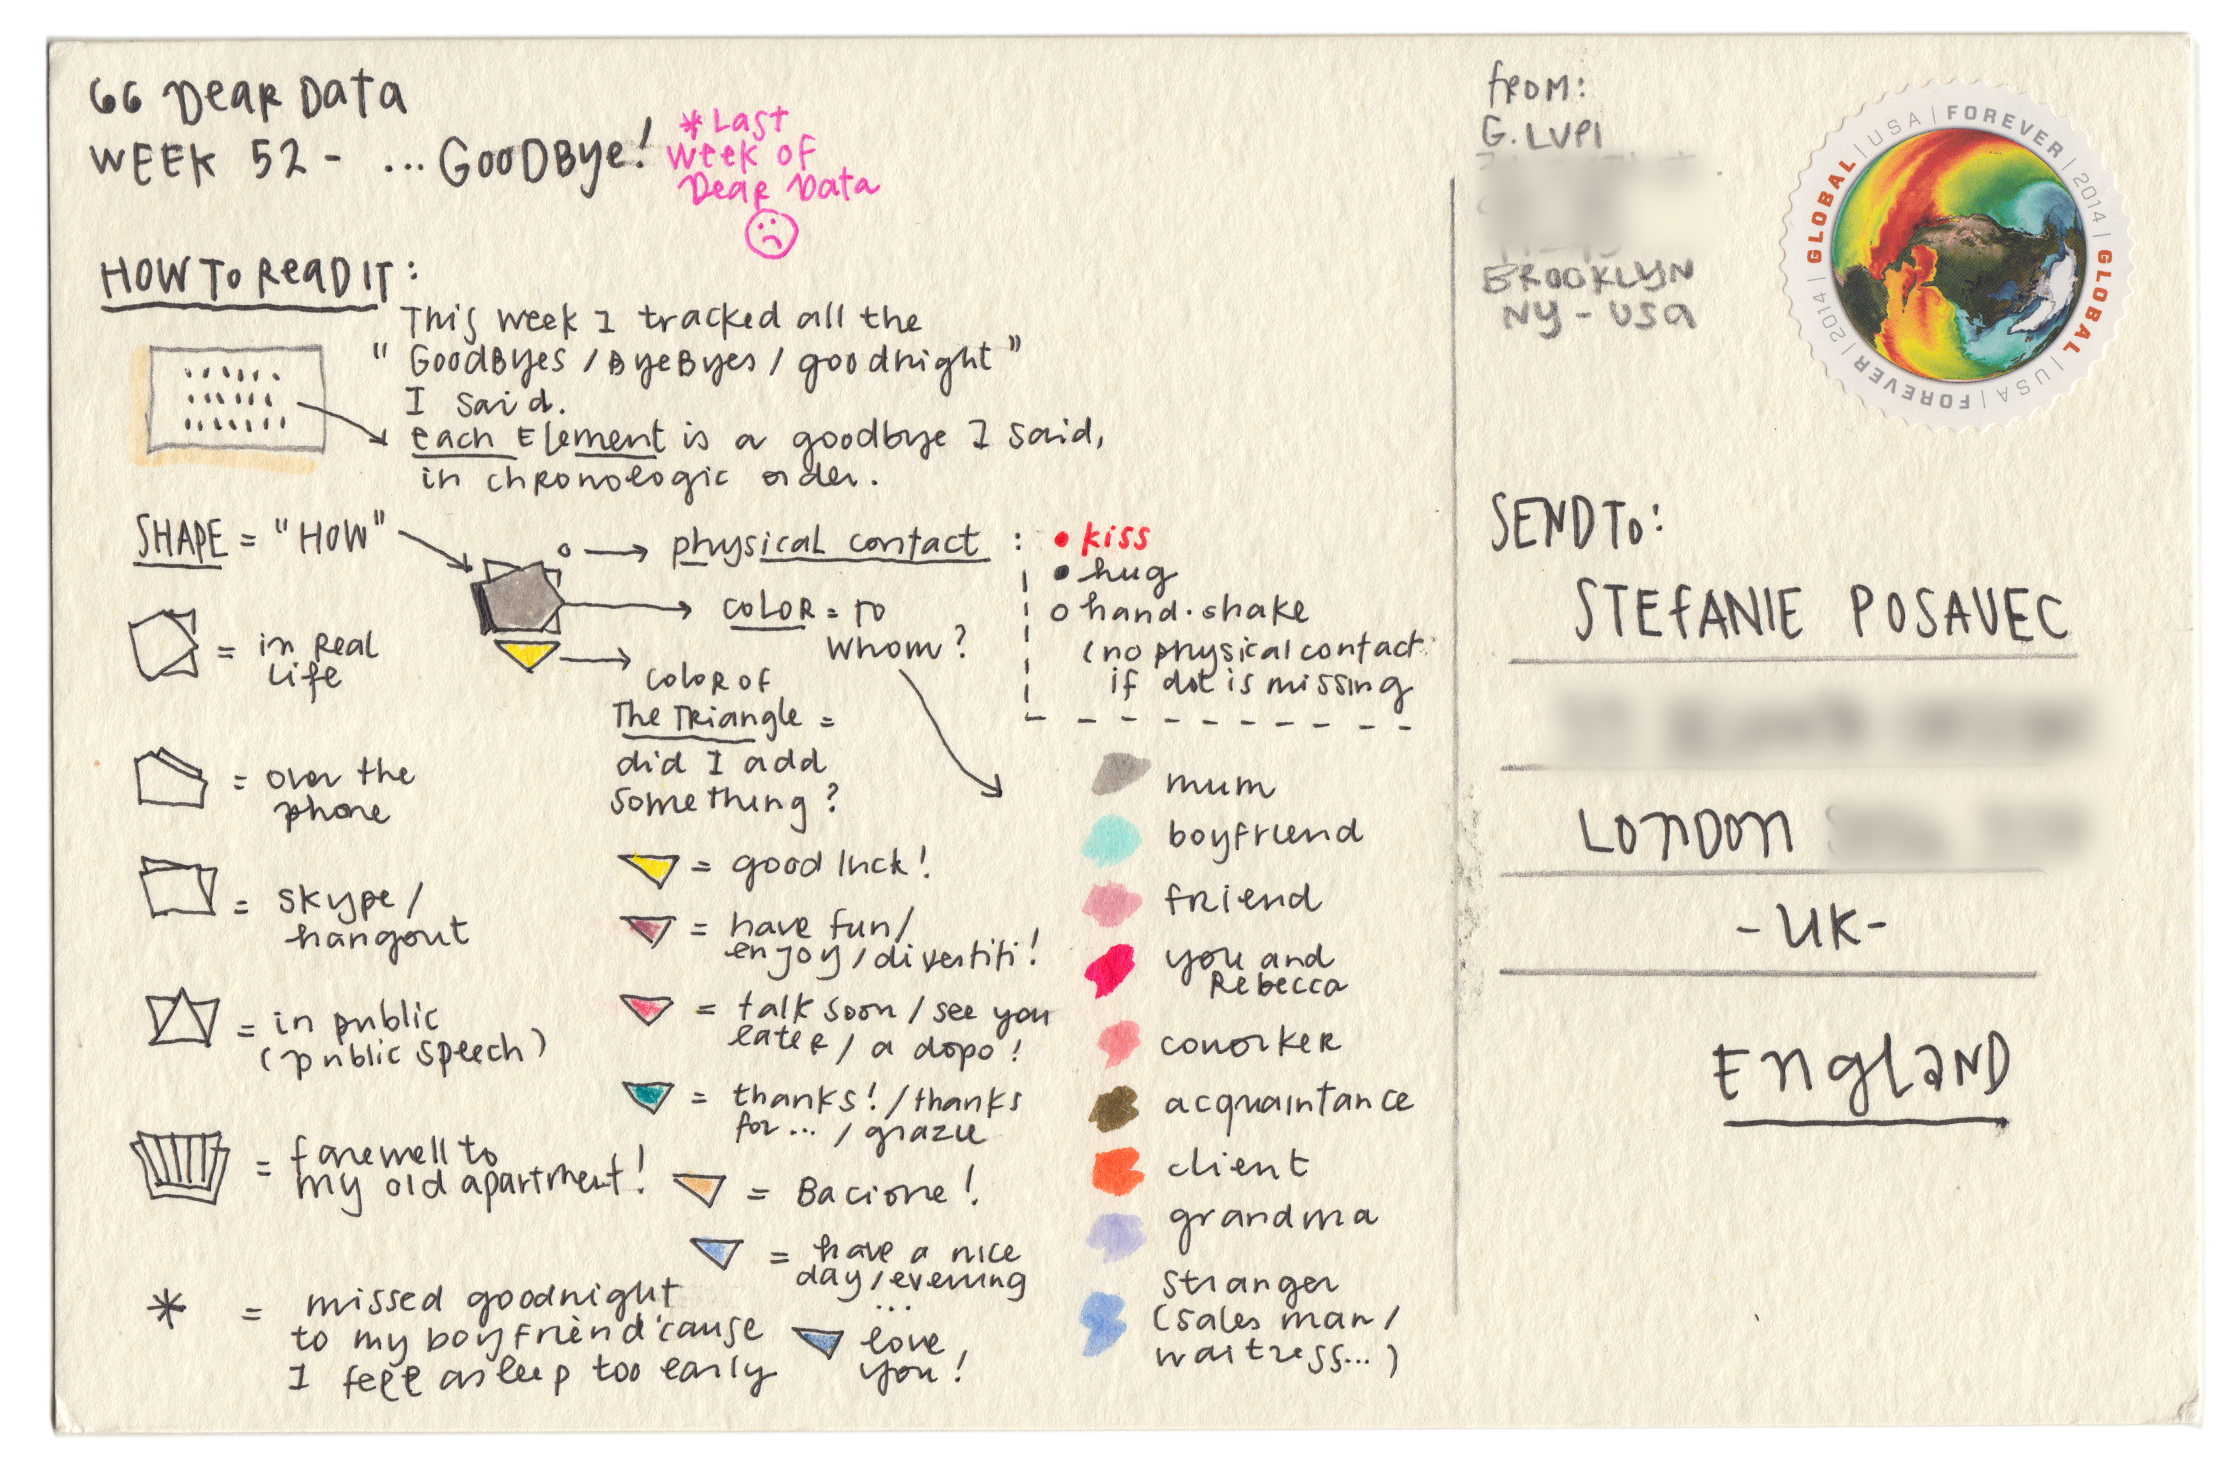 GG Dear Data
WEEK 52 - ... GOODBYE!
* Last
week of
Dear Data
HOW TO READ IT:
This week I tracked all the
"GoodByes / ByeByes / goodnight"
I said.
each Element is a goodbye I said,
in chronologic order.
SHAPE = "HOW"
= in real
life
= over the
phone
= skype /
hangout
= in public
(public speech)
= farewell to
my old apartment!
* = missed goodnight
to my boyfriend 'cause
I fell asleep too early
physical contact :
• kiss
• hug
o hand-shake
(no physical contact
if dot is missing
COLOR = TO
WHOM?
COLOR OF
The Triangle =
did I add
something?
= good luck!
= have fun/
enjoy/divertiti!
= talk soon / see you
later / a dopo!
= thanks! / thanks
for... / grazie
= Bacione!
= have a nice
day / evening
...
love
you!
mum
boyfriend
friend
you and
Rebecca
coworker
acquaintance
client
grandma
stranger
(sales man /
waitress...)
FROM:
G. LUPI
BROOKLYN
NY - USA
GLOBAL | USA | FOREVER | 2014 | GLOBAL | USA | FOREVER | 2014 |
SEND TO:
STEFANIE POSAVEC
LONDON
- UK -
ENGLAND